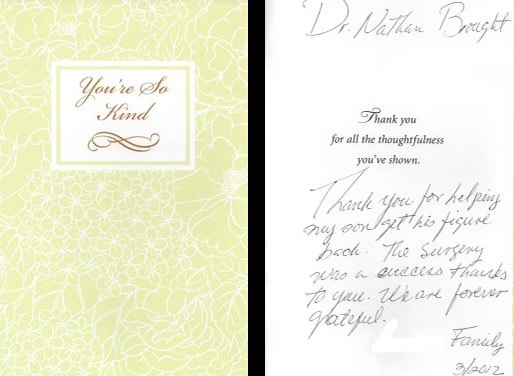 You're So
Kind
Dr. Nathan Brought
Thank you
for all the thoughtfulness
you've shown.
Thank you for helping
my son get his figure
back. The surgery
was a success thanks
to you. We are forever
grateful.
Family
3/2012